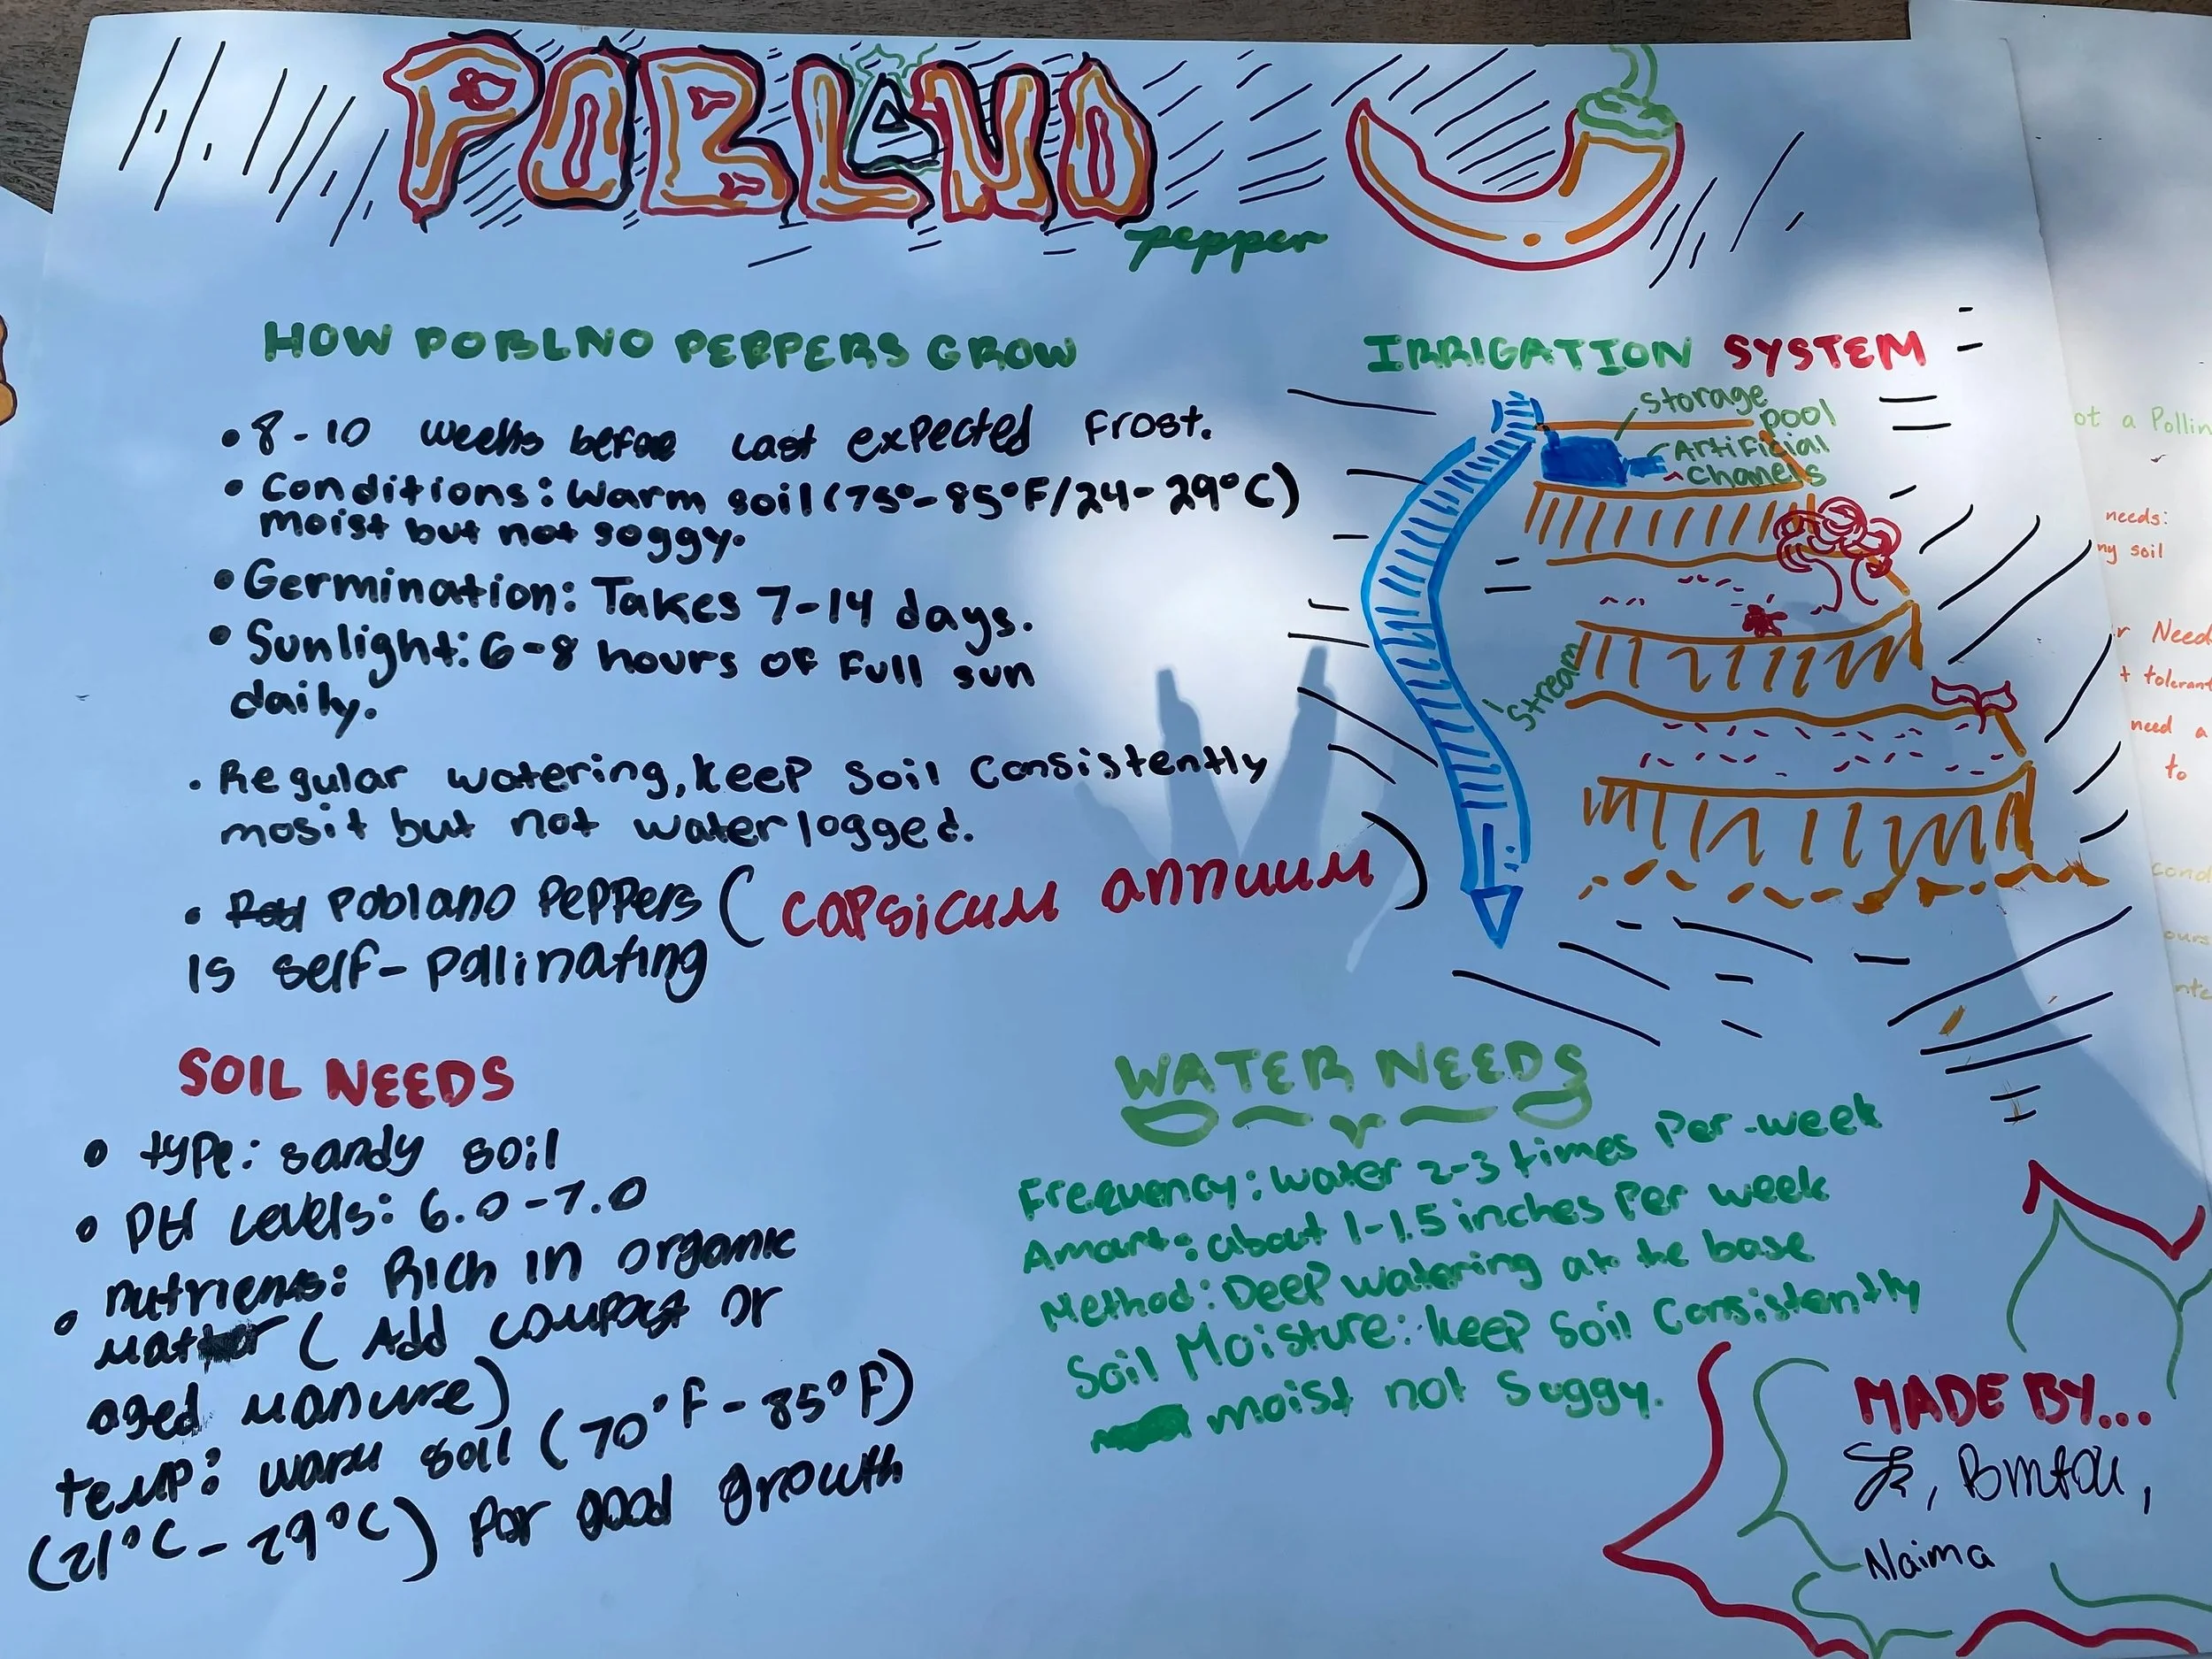 POBLANO
pepper
HOW POBLNO PEPPERS GROW
• 8-10 weeks before last expected frost.
• Conditions: Warm soil (75°-85°F/24-29°C)
moist but not soggy.
• Germination: Takes 7-14 days.
• Sunlight: 6-8 hours of full sun
daily.
• Regular watering, keep soil consistently
mosit but not waterlogged.
• Poblano Peppers (capsicum annuum)
is self-pollinating
IRRIGATION SYSTEM
storage
pool
Artificial
chanels
Stream
SOIL NEEDS
• type: sandy soil
• PH Levels: 6.0-7.0
• nutrients: Rich in organic
matter (Add compost or
aged manure)
temp: warm soil (70°F-85°F)
(21°C-29°C) for good growth
WATER NEEDS
Frequency: water 2-3 times per-week
Amont: about 1-1.5 inches per week
Method: Deep watering at the base
Soil Moisture: keep soil consistently
moist not soggy.
MADE BY...
Naima
ot a Pollin
needs:
ny soil
r Need
t tolerant
need a
to
cond
ours
nte